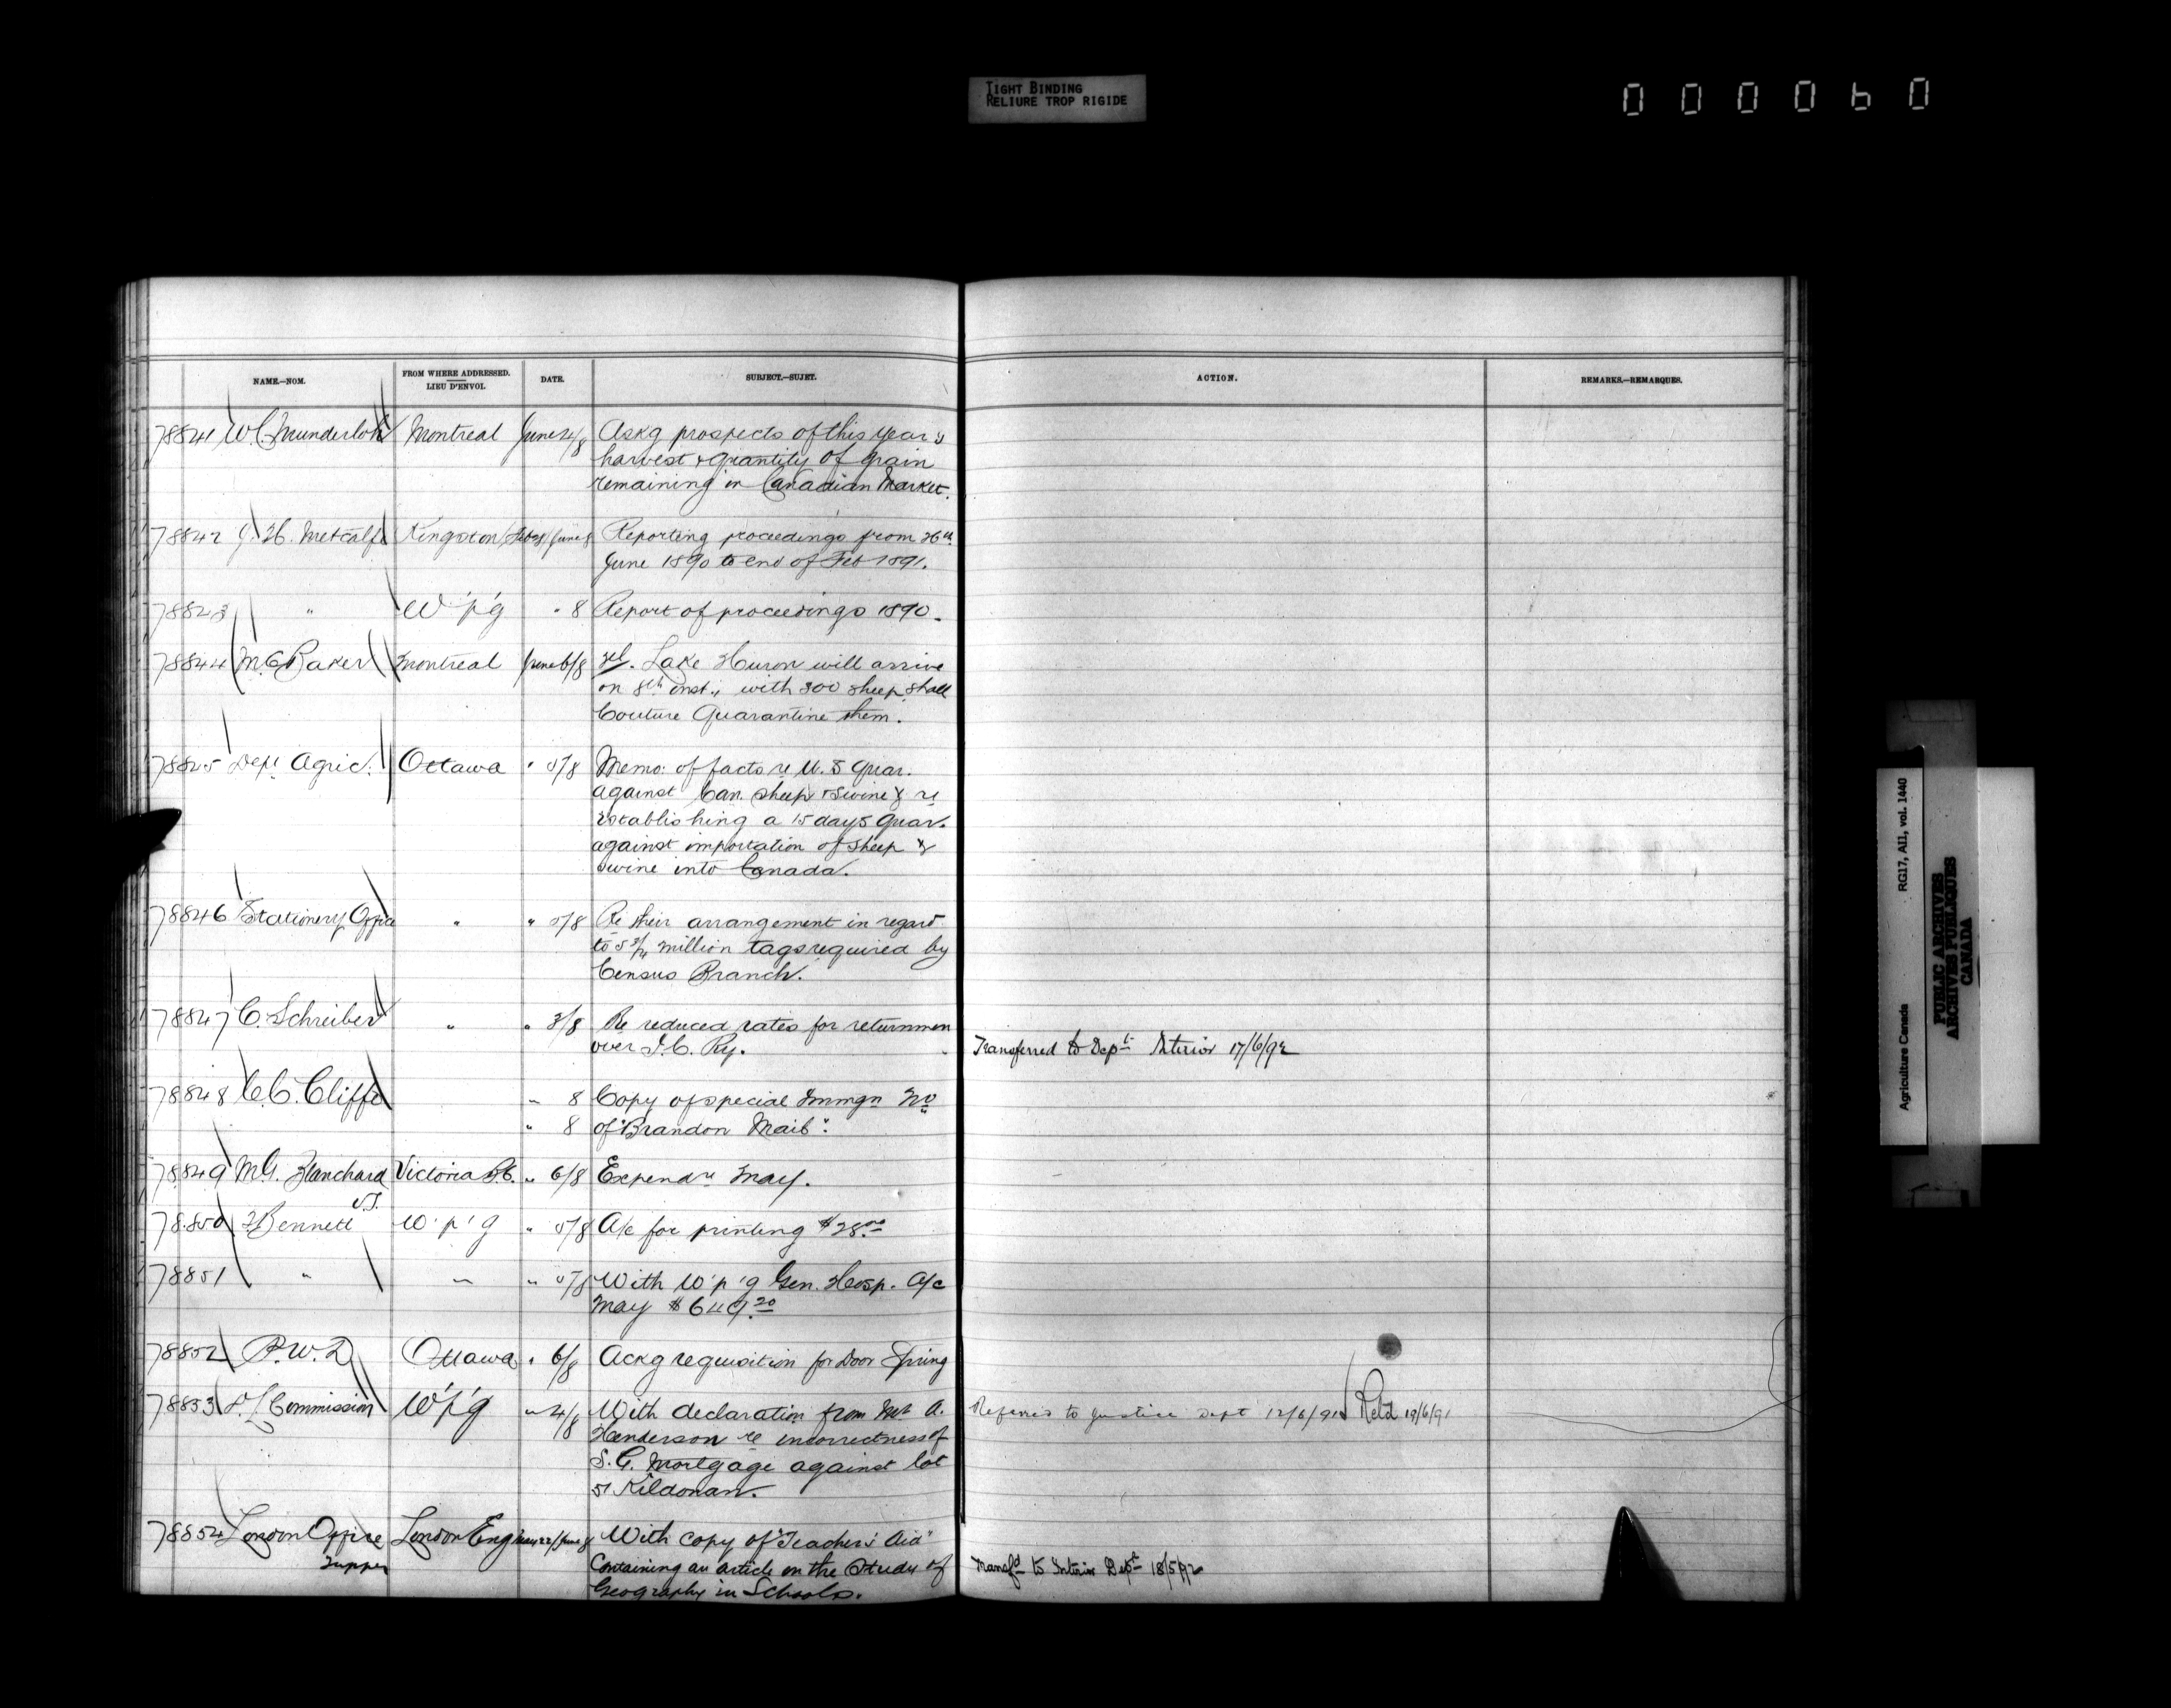 TIGHT BINDING
RELIURE TROP RIGIDE
000060
NAME.—NOM.
FROM WHERE ADDRESSED.
LIEU D'ENVOI.
DATE.
SUBJECT.—SUJET.
ACTION.
REMARKS.—REMARQUES.
78841 W.C. Munderloh Montreal June 4/8 Askg prospects of this year's
harvest & quantity of grain
remaining in Canadian Market.
78842 J. H. Metcalfe Kingston Feb 28/June 8 Reporting proceedings from 26th
June 1890 to end of Feb 1891.
78843 " W'p'g " 8 Report of proceedings 1890.
78844 M.C. Baker Montreal June 6/8 Tel. Lake Huron will arrive
on 8th inst., with 300 sheep, shall
Couture Quarantine them.
78845 Dept Agric. Ottawa " 5/8 Memo: of facts re U.S Quar.
against Can. sheep & swine & re
establishing a 15 days Quar.
against importation of sheep &
swine into Canada.
78846 Stationery Office " " 5/8 Re their arrangement in regard
to 5 3/4 million tags required by
Census Branch.
78847 C. Schreiber " " 3/8 Re reduced rates for returnmen
over I.C. Ry.
Transferred to Dept Interior 17/6/92
78848 C.C. Cliffe " 8 Copy of special Immgn No
" 8 of "Brandon Mail".
78849 M.G. Blanchard Victoria B.C. " 6/8 Expendre May.
78850 Bennett W'p'g " 5/8 A/c for printing $28.00
78851 " " " 5/8 With W'p'g Gen. Hosp. A/c
May $649.20
78852 P.W.D Ottawa " 6/8 Ackg requisition for Door Spring
78853 D.L Commission W'p'g " 4/8 With declaration from Mr A.
Henderson re incorrectness of
S.G. Mortgage against lot
51 Kildonan.
Referred to Justice Dept 12/6/91 Retd 19/6/91
78854 London Office London Eng May 22/June 8 With copy of "Teachers' Aid"
Tupper
Containing an article on the Study of
Geography in Schools.
Transfd to Interior Dept 18/5/92
Agriculture Canada RG17, AI1, vol. 1440
PUBLIC ARCHIVES
ARCHIVES PUBLIQUES
CANADA